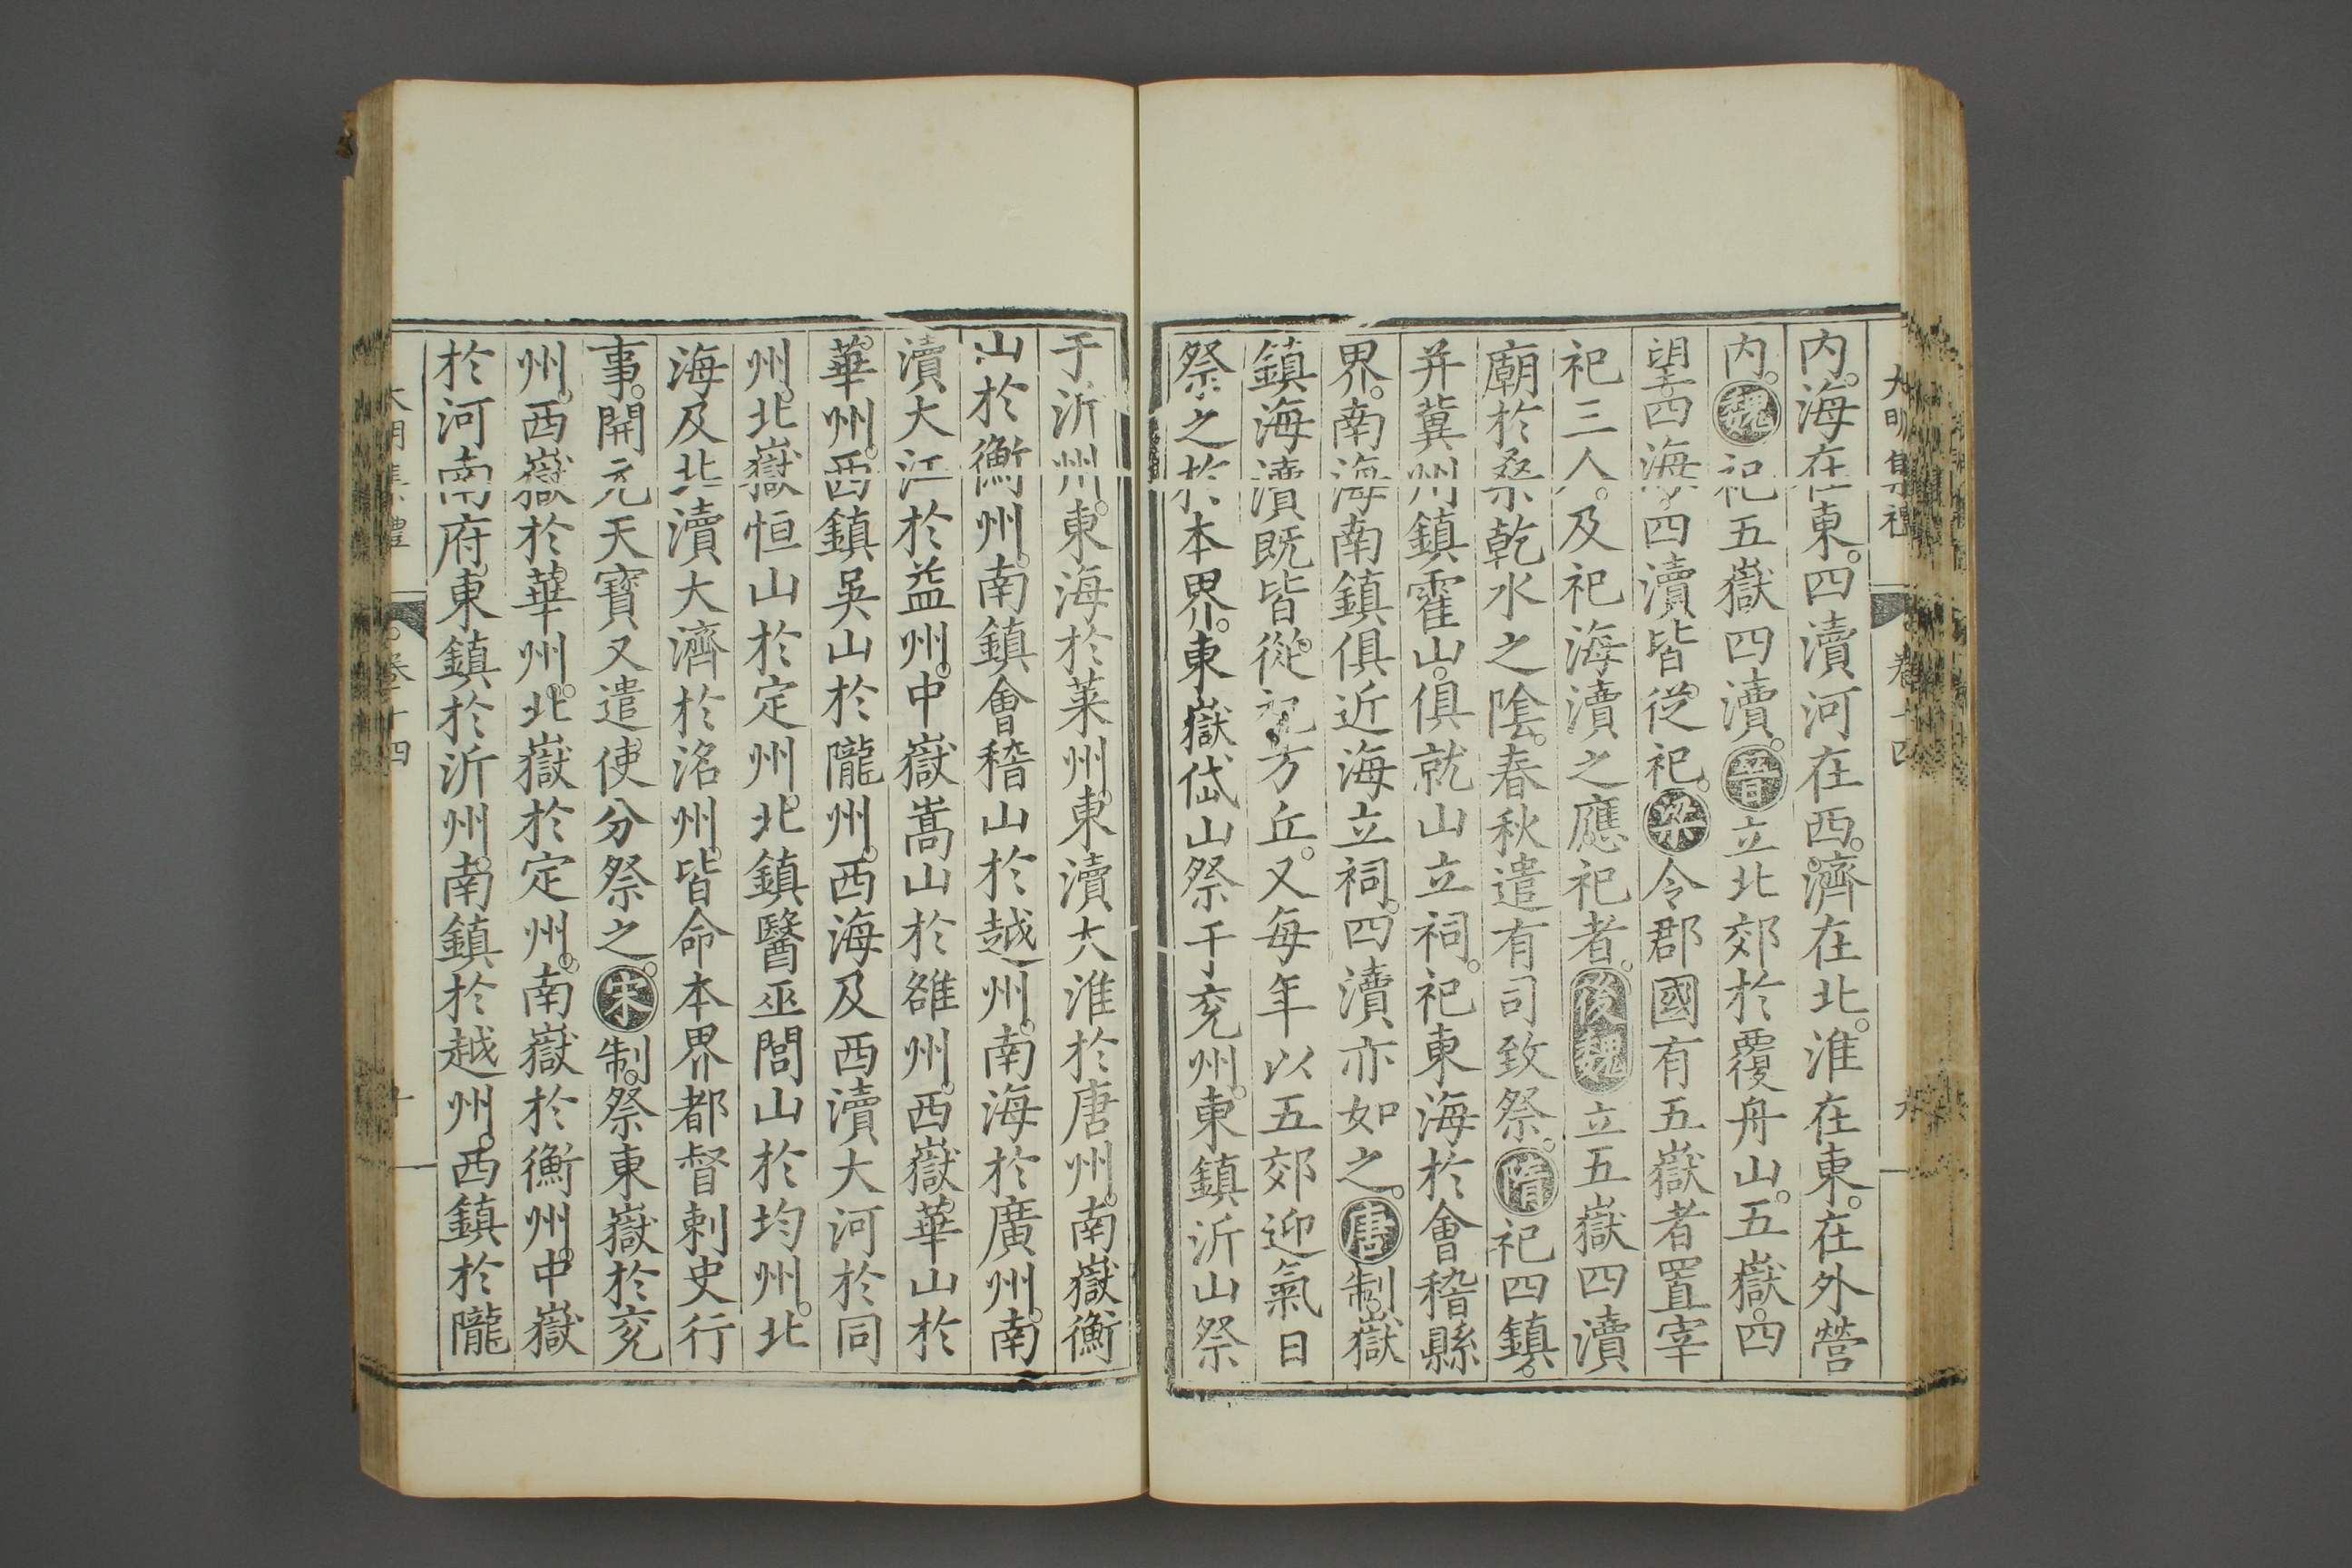 大明集禮 卷十四
内。海在東。四瀆河在西。濟在北。淮在東。在外營
内。魏祀五嶽四瀆。晉立北郊於覆舟山。五嶽。四
望。四海。四瀆皆從祀。梁令郡國有五嶽者置宰
祀三人。及祀海瀆之應祀者。後魏立五嶽四瀆
廟於桑乾水之陰。春秋遣有司致祭。隋祀四鎮。
并冀州鎮霍山。俱就山立祠。祀東海於會稽縣
界。南海南鎮俱近海立祠。四瀆亦如之。唐制。嶽
鎮海瀆既皆從祀方丘。又每年以五郊迎氣日
祭之於本界。東嶽岱山祭于兖州。東鎮沂山祭
于沂州。東海於萊州。東瀆大淮於唐州。南嶽衡
山於衡州。南鎮會稽山於越州。南海於廣州。南
瀆大江於益州。中嶽嵩山於雒州。西嶽華山於
華州。西鎮吳山於隴州。西海及西瀆大河於同
州。北嶽恒山於定州。北鎮醫巫閭山於均州。北
海及北瀆大濟於洺州。皆命本界都督剌史行
事。開元天寶又遣使分祭之。宋制。祭東嶽於兖
州。西嶽於華州。北嶽於定州。南嶽於衡州。中嶽
於河南府。東鎮於沂州。南鎮於越州。西鎮於隴
大明集禮 卷十四 十